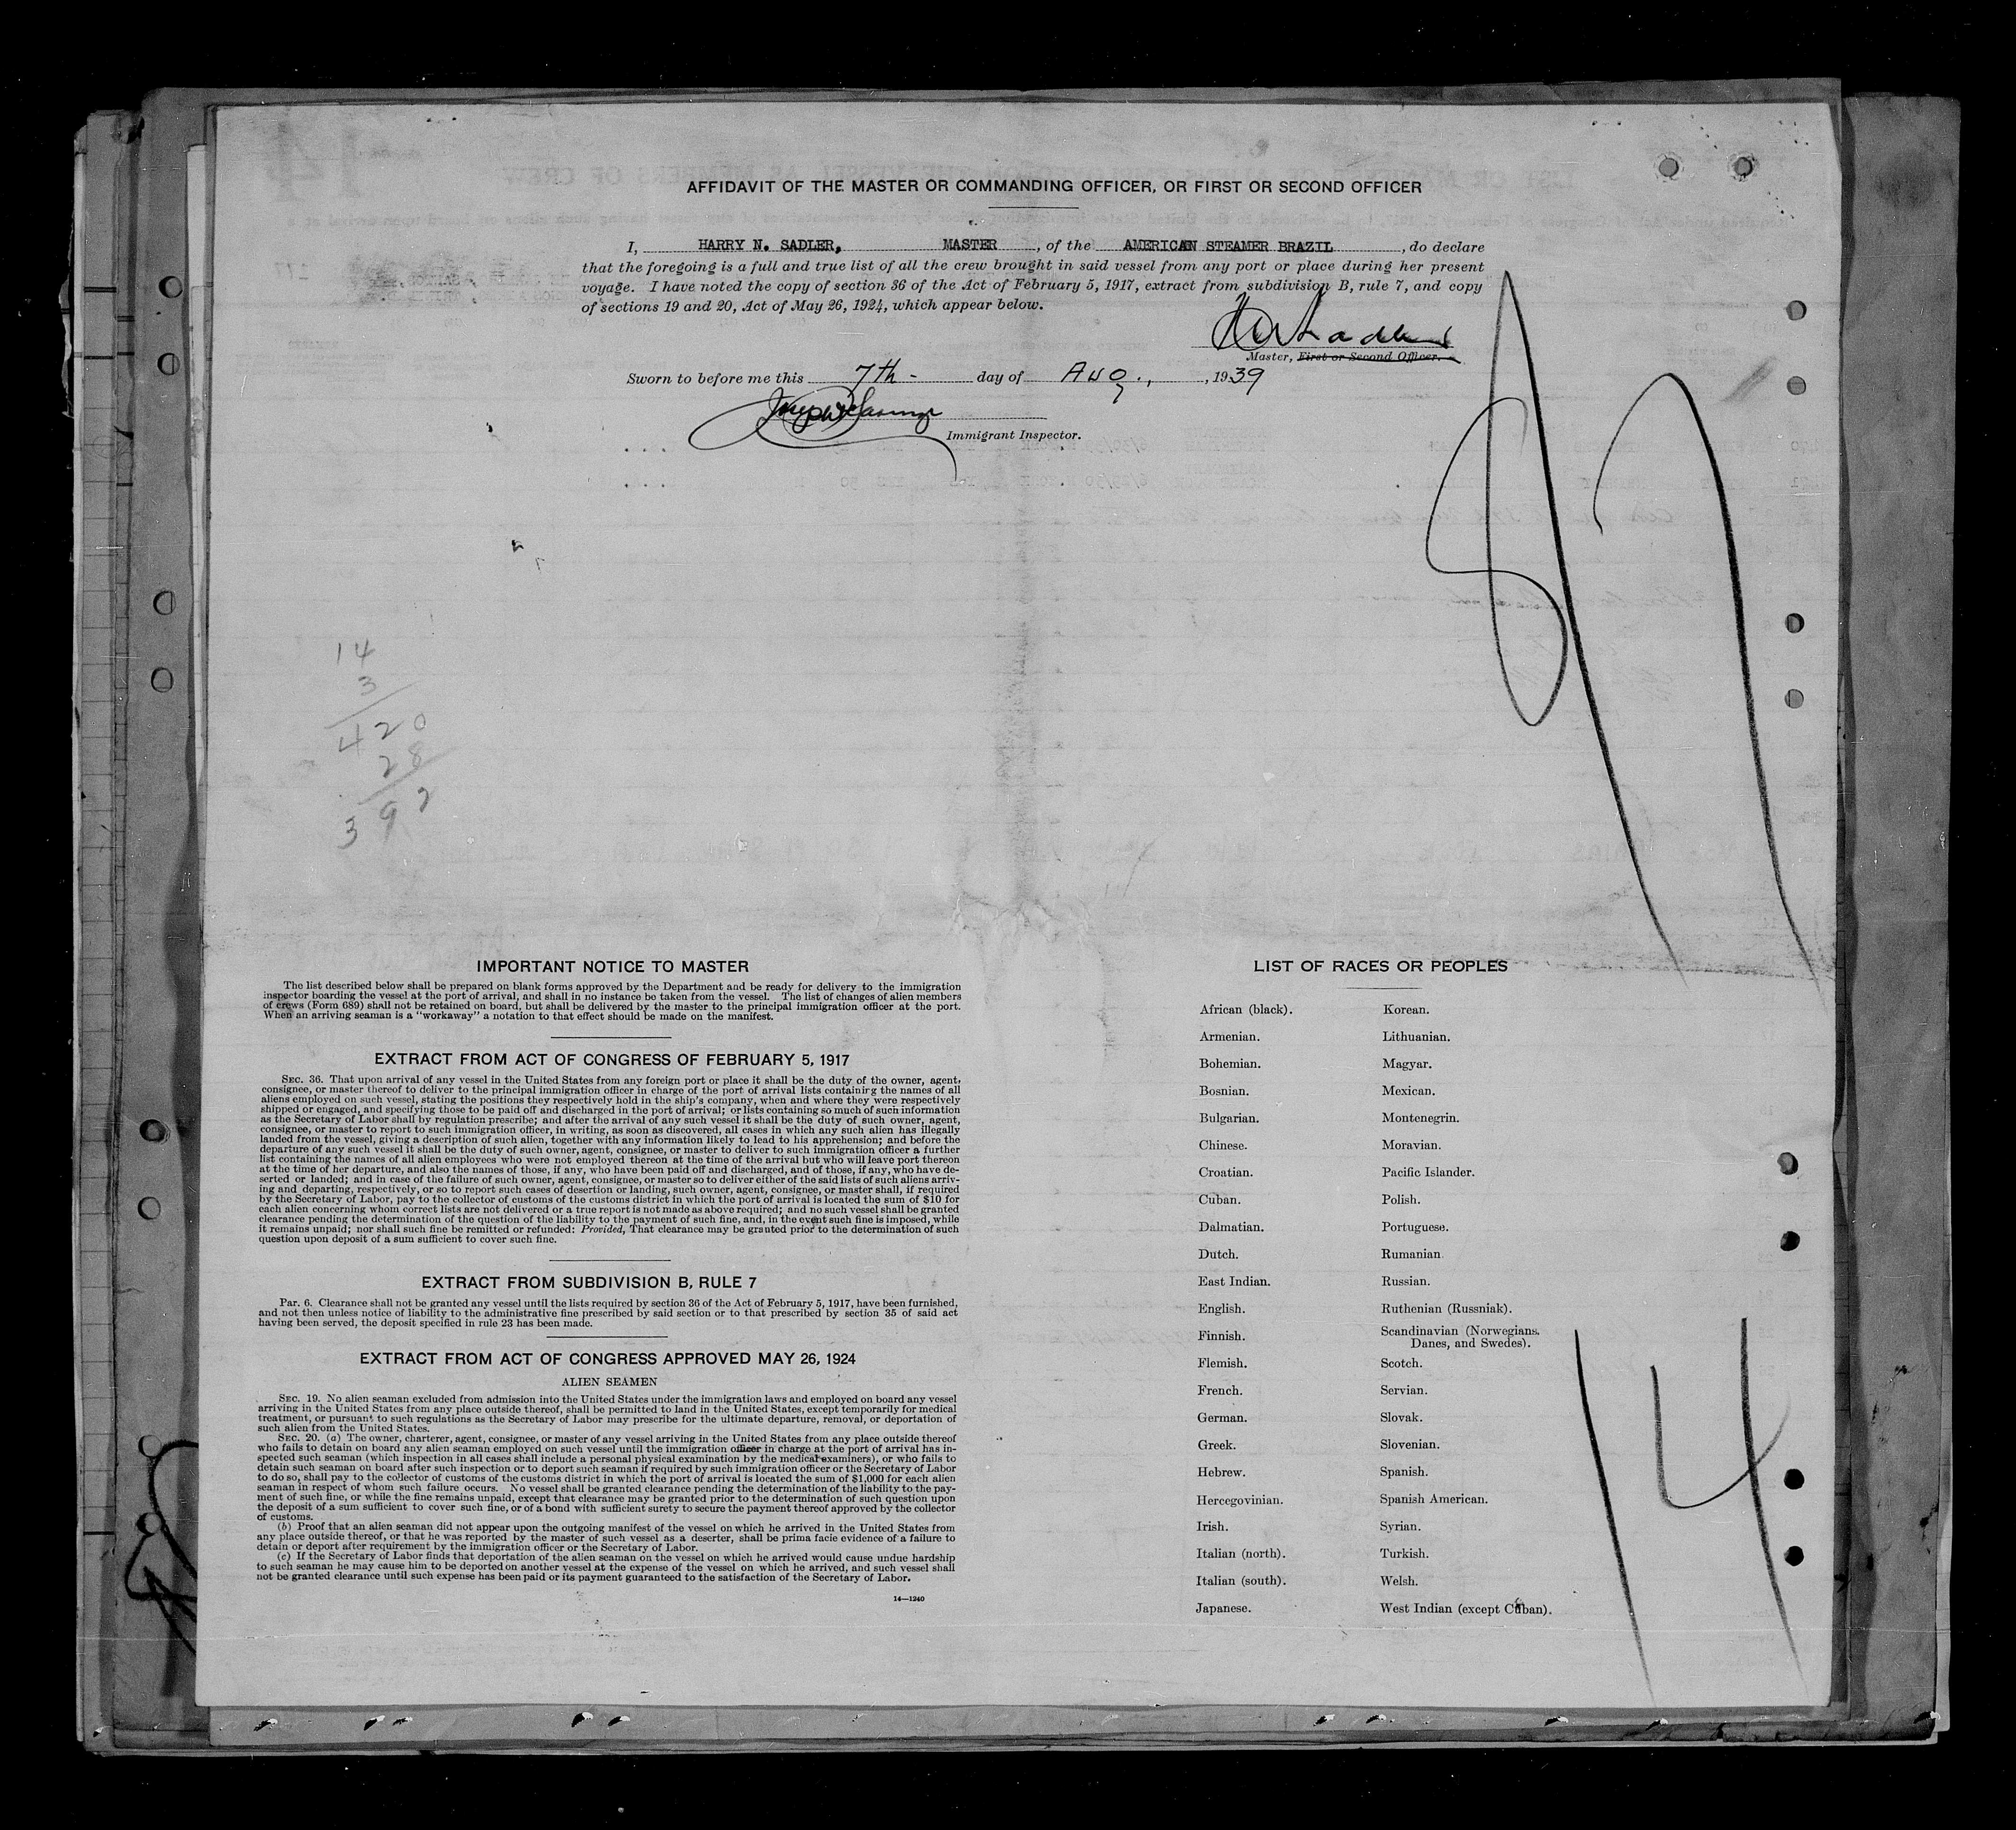 AFFIDAVIT OF THE MASTER OR COMMANDING OFFICER, OR FIRST OR SECOND OFFICER
I, HARRY N. SADLER, MASTER, of the AMERICAN STEAMER BRAZIL, do declare
that the foregoing is a full and true list of all the crew brought in said vessel from any port or place during her present
voyage. I have noted the copy of section 36 of the Act of February 5, 1917, extract from subdivision B, rule 7, and copy
of sections 19 and 20, Act of May 26, 1924, which appear below.
Master, First or Second Officer.
Sworn to before me this 7th - day of Aug., 1939
Immigrant Inspector.
14
3
420
28
392
IMPORTANT NOTICE TO MASTER
The list described below shall be prepared on blank forms approved by the Department and be ready for delivery to the immigration
inspector boarding the vessel at the port of arrival, and shall in no instance be taken from the vessel. The list of changes of alien members
of crews (Form 689) shall not be retained on board, but shall be delivered by the master to the principal immigration officer at the port.
When an arriving seaman is a "workaway" a notation to that effect should be made on the manifest.
EXTRACT FROM ACT OF CONGRESS OF FEBRUARY 5, 1917
SEC. 36. That upon arrival of any vessel in the United States from any foreign port or place it shall be the duty of the owner, agent,
consignee, or master thereof to deliver to the principal immigration officer in charge of the port of arrival lists containing the names of all
aliens employed on such vessel, stating the positions they respectively hold in the ship's company, when and where they were respectively
shipped or engaged, and specifying those to be paid off and discharged in the port of arrival; or lists containing so much of such information
as the Secretary of Labor shall by regulation prescribe; and after the arrival of any such vessel it shall be the duty of such owner, agent,
consignee, or master to report to such immigration officer, in writing, as soon as discovered, all cases in which any such alien has illegally
landed from the vessel, giving a description of such alien, together with any information likely to lead to his apprehension; and before the
departure of any such vessel it shall be the duty of such owner, agent, consignee, or master to deliver to such immigration officer a further
list containing the names of all alien employees who were not employed thereon at the time of the arrival but who will leave port thereon
at the time of her departure, and also the names of those, if any, who have been paid off and discharged, and of those, if any, who have de-
serted or landed; and in case of the failure of such owner, agent, consignee, or master so to deliver either of the said lists of such aliens arriv-
ing and departing, respectively, or so to report such cases of desertion or landing, such owner, agent, consignee, or master shall, if required
by the Secretary of Labor, pay to the collector of customs of the customs district in which the port of arrival is located the sum of $10 for
each alien concerning whom correct lists are not delivered or a true report is not made as above required; and no such vessel shall be granted
clearance pending the determination of the question of the liability to the payment of such fine, and, in the event such fine is imposed, while
it remains unpaid; nor shall such fine be remitted or refunded: Provided, That clearance may be granted prior to the determination of such
question upon deposit of a sum sufficient to cover such fine.
EXTRACT FROM SUBDIVISION B, RULE 7
PAR. 6. Clearance shall not be granted any vessel until the lists required by section 36 of the Act of February 5, 1917, have been furnished,
and not then unless notice of liability to the administrative fine prescribed by said section or to that prescribed by section 35 of said act
having been served, the deposit specified in rule 23 has been made.
EXTRACT FROM ACT OF CONGRESS APPROVED MAY 26, 1924
ALIEN SEAMEN
SEC. 19. No alien seaman excluded from admission into the United States under the immigration laws and employed on board any vessel
arriving in the United States from any place outside thereof, shall be permitted to land in the United States, except temporarily for medical
treatment, or pursuant to such regulations as the Secretary of Labor may prescribe for the ultimate departure, removal, or deportation of
such alien from the United States.
SEC. 20. (a) The owner, charterer, agent, consignee, or master of any vessel arriving in the United States from any place outside thereof
who fails to detain on board any alien seaman employed on such vessel until the immigration officer in charge at the port of arrival has in-
spected such seaman (which inspection in all cases shall include a personal physical examination by the medical examiners), or who fails to
detain such seaman on board after such inspection or to deport such seaman if required by such immigration officer or the Secretary of Labor
to do so, shall pay to the collector of customs of the customs district in which the port of arrival is located the sum of $1,000 for each alien
seaman in respect of whom such failure occurs. No vessel shall be granted clearance pending the determination of the liability to the pay-
ment of such fine, or while the fine remains unpaid, except that clearance may be granted prior to the determination of such question upon
the deposit of a sum sufficient to cover such fine, or of a bond with sufficient surety to secure the payment thereof approved by the collector
of customs.
(b) Proof that an alien seaman did not appear upon the outgoing manifest of the vessel on which he arrived in the United States from
any place outside thereof, or that he was reported by the master of such vessel as a deserter, shall be prima facie evidence of a failure to
detain or deport after requirement by the immigration officer or the Secretary of Labor.
(c) If the Secretary of Labor finds that deportation of the alien seaman on the vessel on which he arrived would cause undue hardship
to such seaman he may cause him to be deported on another vessel at the expense of the vessel on which he arrived, and such vessel shall
not be granted clearance until such expense has been paid or its payment guaranteed to the satisfaction of the Secretary of Labor.
14—1240
LIST OF RACES OR PEOPLES
African (black).
Armenian.
Bohemian.
Bosnian.
Bulgarian.
Chinese.
Croatian.
Cuban.
Dalmatian.
Dutch.
East Indian.
English.
Finnish.
Flemish.
French.
German.
Greek.
Hebrew.
Hercegovinian.
Irish.
Italian (north).
Italian (south).
Japanese.
Korean.
Lithuanian.
Magyar.
Mexican.
Montenegrin.
Moravian.
Pacific Islander.
Polish.
Portuguese.
Rumanian.
Russian.
Ruthenian (Russniak).
Scandinavian (Norwegians,
Danes, and Swedes).
Scotch.
Servian.
Slovak.
Slovenian.
Spanish.
Spanish American.
Syrian.
Turkish.
Welsh.
West Indian (except Cuban).
14